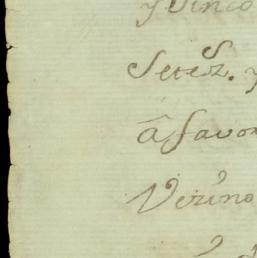 y Cinco
Setes. y
â favor
Vezino